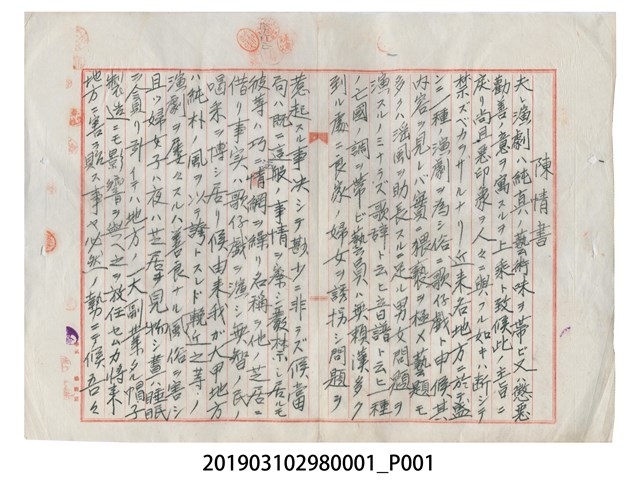 陳情書
夫レ演劇ハ純真ノ藝術味ヲ帶ビ又懲悪
勸善ノ意ヲ寓スルヲ上乘ト致候此ノ主旨ニ
戻リ尚且悪印象ヲ人々ニ與フル如キハ断ジテ
禁ズベカラザルナリ近来各地方ニ於テ盛
ンニ一種ノ演劇ヲ為シ俗ニ歌仔戲ト申候其
内容ヲ見レバ實ニ猥褻ヲ極メ藝題モ
多クハ滛風ヲ助長スルニ足ル男女問題ヲ
演スルノミナラズ歌辞ト云ヒ音譜ト云ヒ一種
ノ亡國ノ調ヲ帶ビ藝員ハ無頼漢多ク
到ル處ニ良家ノ婦女ヲ誘拐シ問題ヲ
惹起スル事決シテ尠少ニ非ラズ候當
局ハ既ニ這般ノ事情ヲ察シ嚴禁シ居ルモ
彼等ハ巧ニ情網ヲ繹リ名稱ヲ他ノ芝居ニ
借リ事実ハ歌仔戲ヲ演シ無智ノ民ノ
喝采ヲ博シ居リ候由来我ガ大甲地方
ハ純朴ノ風ヲ以テ誇トスレド輓近之等ノ
演劇ヲ屢々スルハ善良ナル風俗ヲ害シ
且ツ婦女子ハ夜ハ芝居ヲ見物シ晝ハ睡眠
ヲ貪リ引イテハ地方ノ一大副業タル帽子
製造ニモ影響ヲ與ヘ之ヲ放任セムカ將来
地方ニ害ヲ貽ス事ヤ必然ノ勢ニテ候吾々
201903102980001_P001